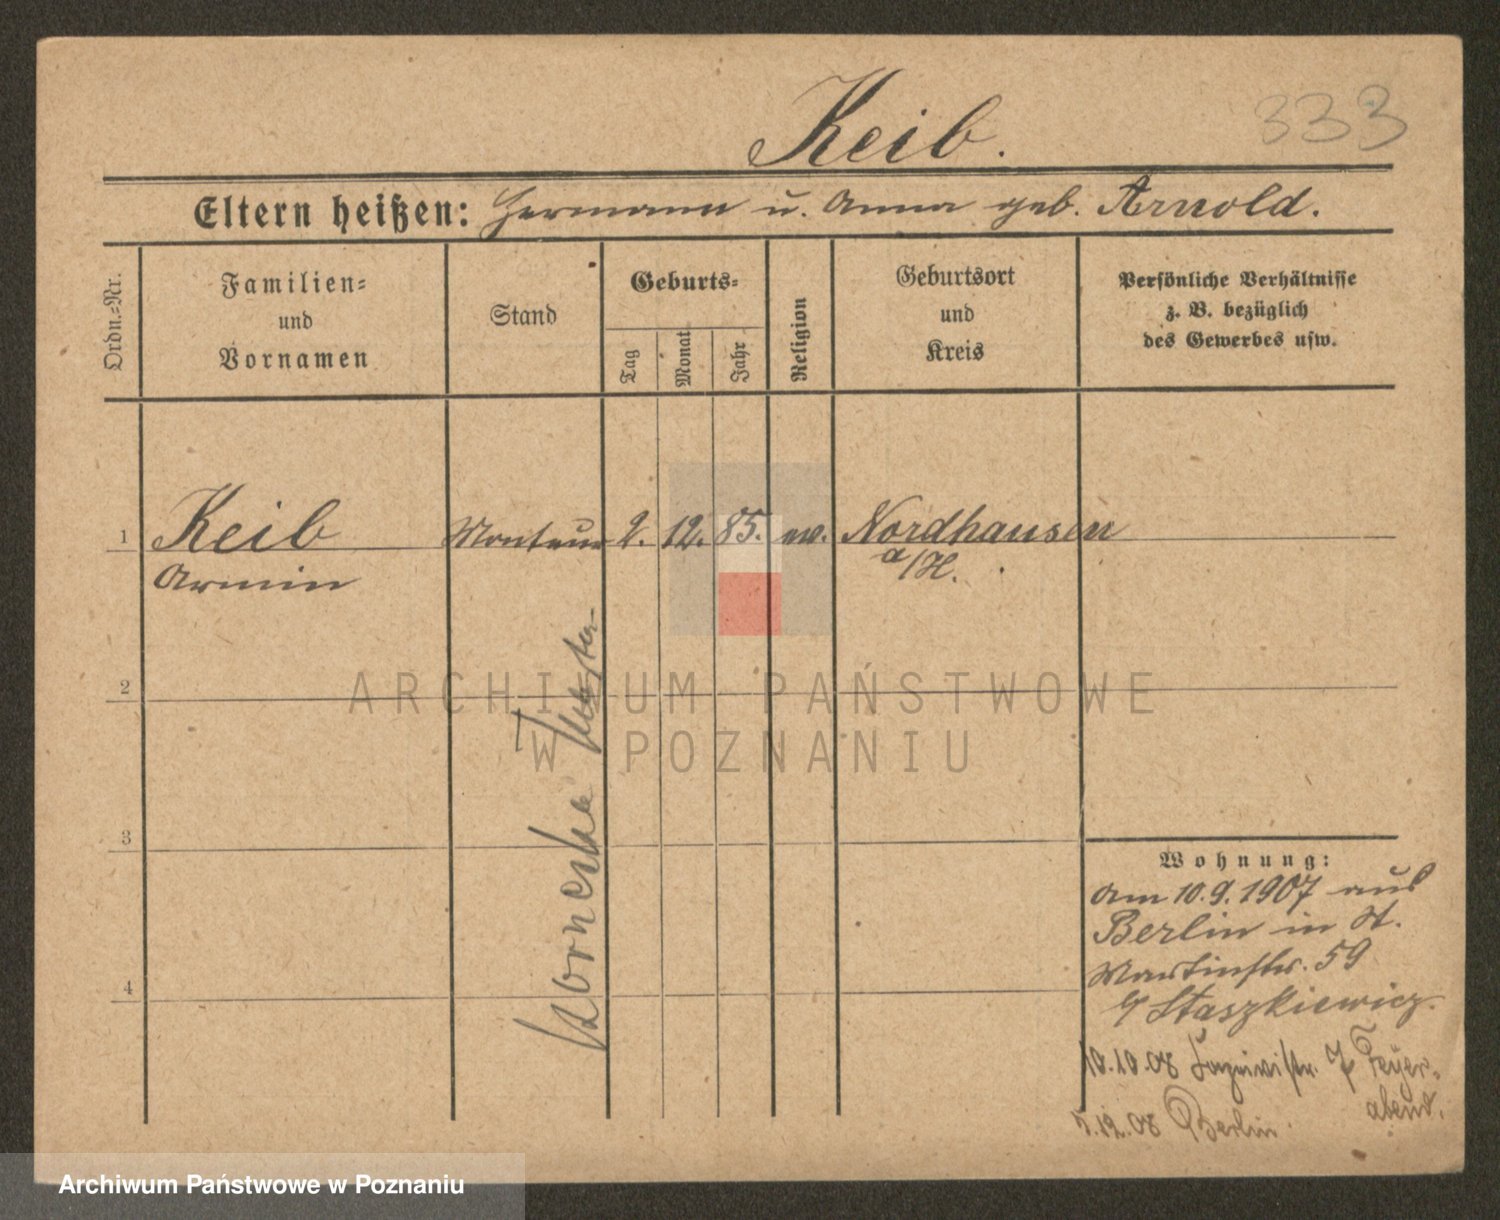 Keib.
333
Eltern heißen: Hermann u. Anna geb. Arnold.
Ordn.-Nr.
Familien- und Vornamen
Stand
Geburts-
Tag
Monat
Jahr
Religion
Geburtsort und Kreis
Persönliche Verhältnisse
z. B. bezüglich
des Gewerbes usw.
1 Keib Monteur 2. 12. 85. ev. Nordhausen
Armin a/H.
2
3
4
ARCHIWUM PAŃSTWOWE
W POZNANIU
Wohnung:
Am 10.9.1907 aus
Berlin in St.
Martinstr. 59
b/ Staszkiewicz.
10.10.08 7 Feyer-
abend.
5.12.08 Berlin.
Archiwum Państwowe w Poznaniu